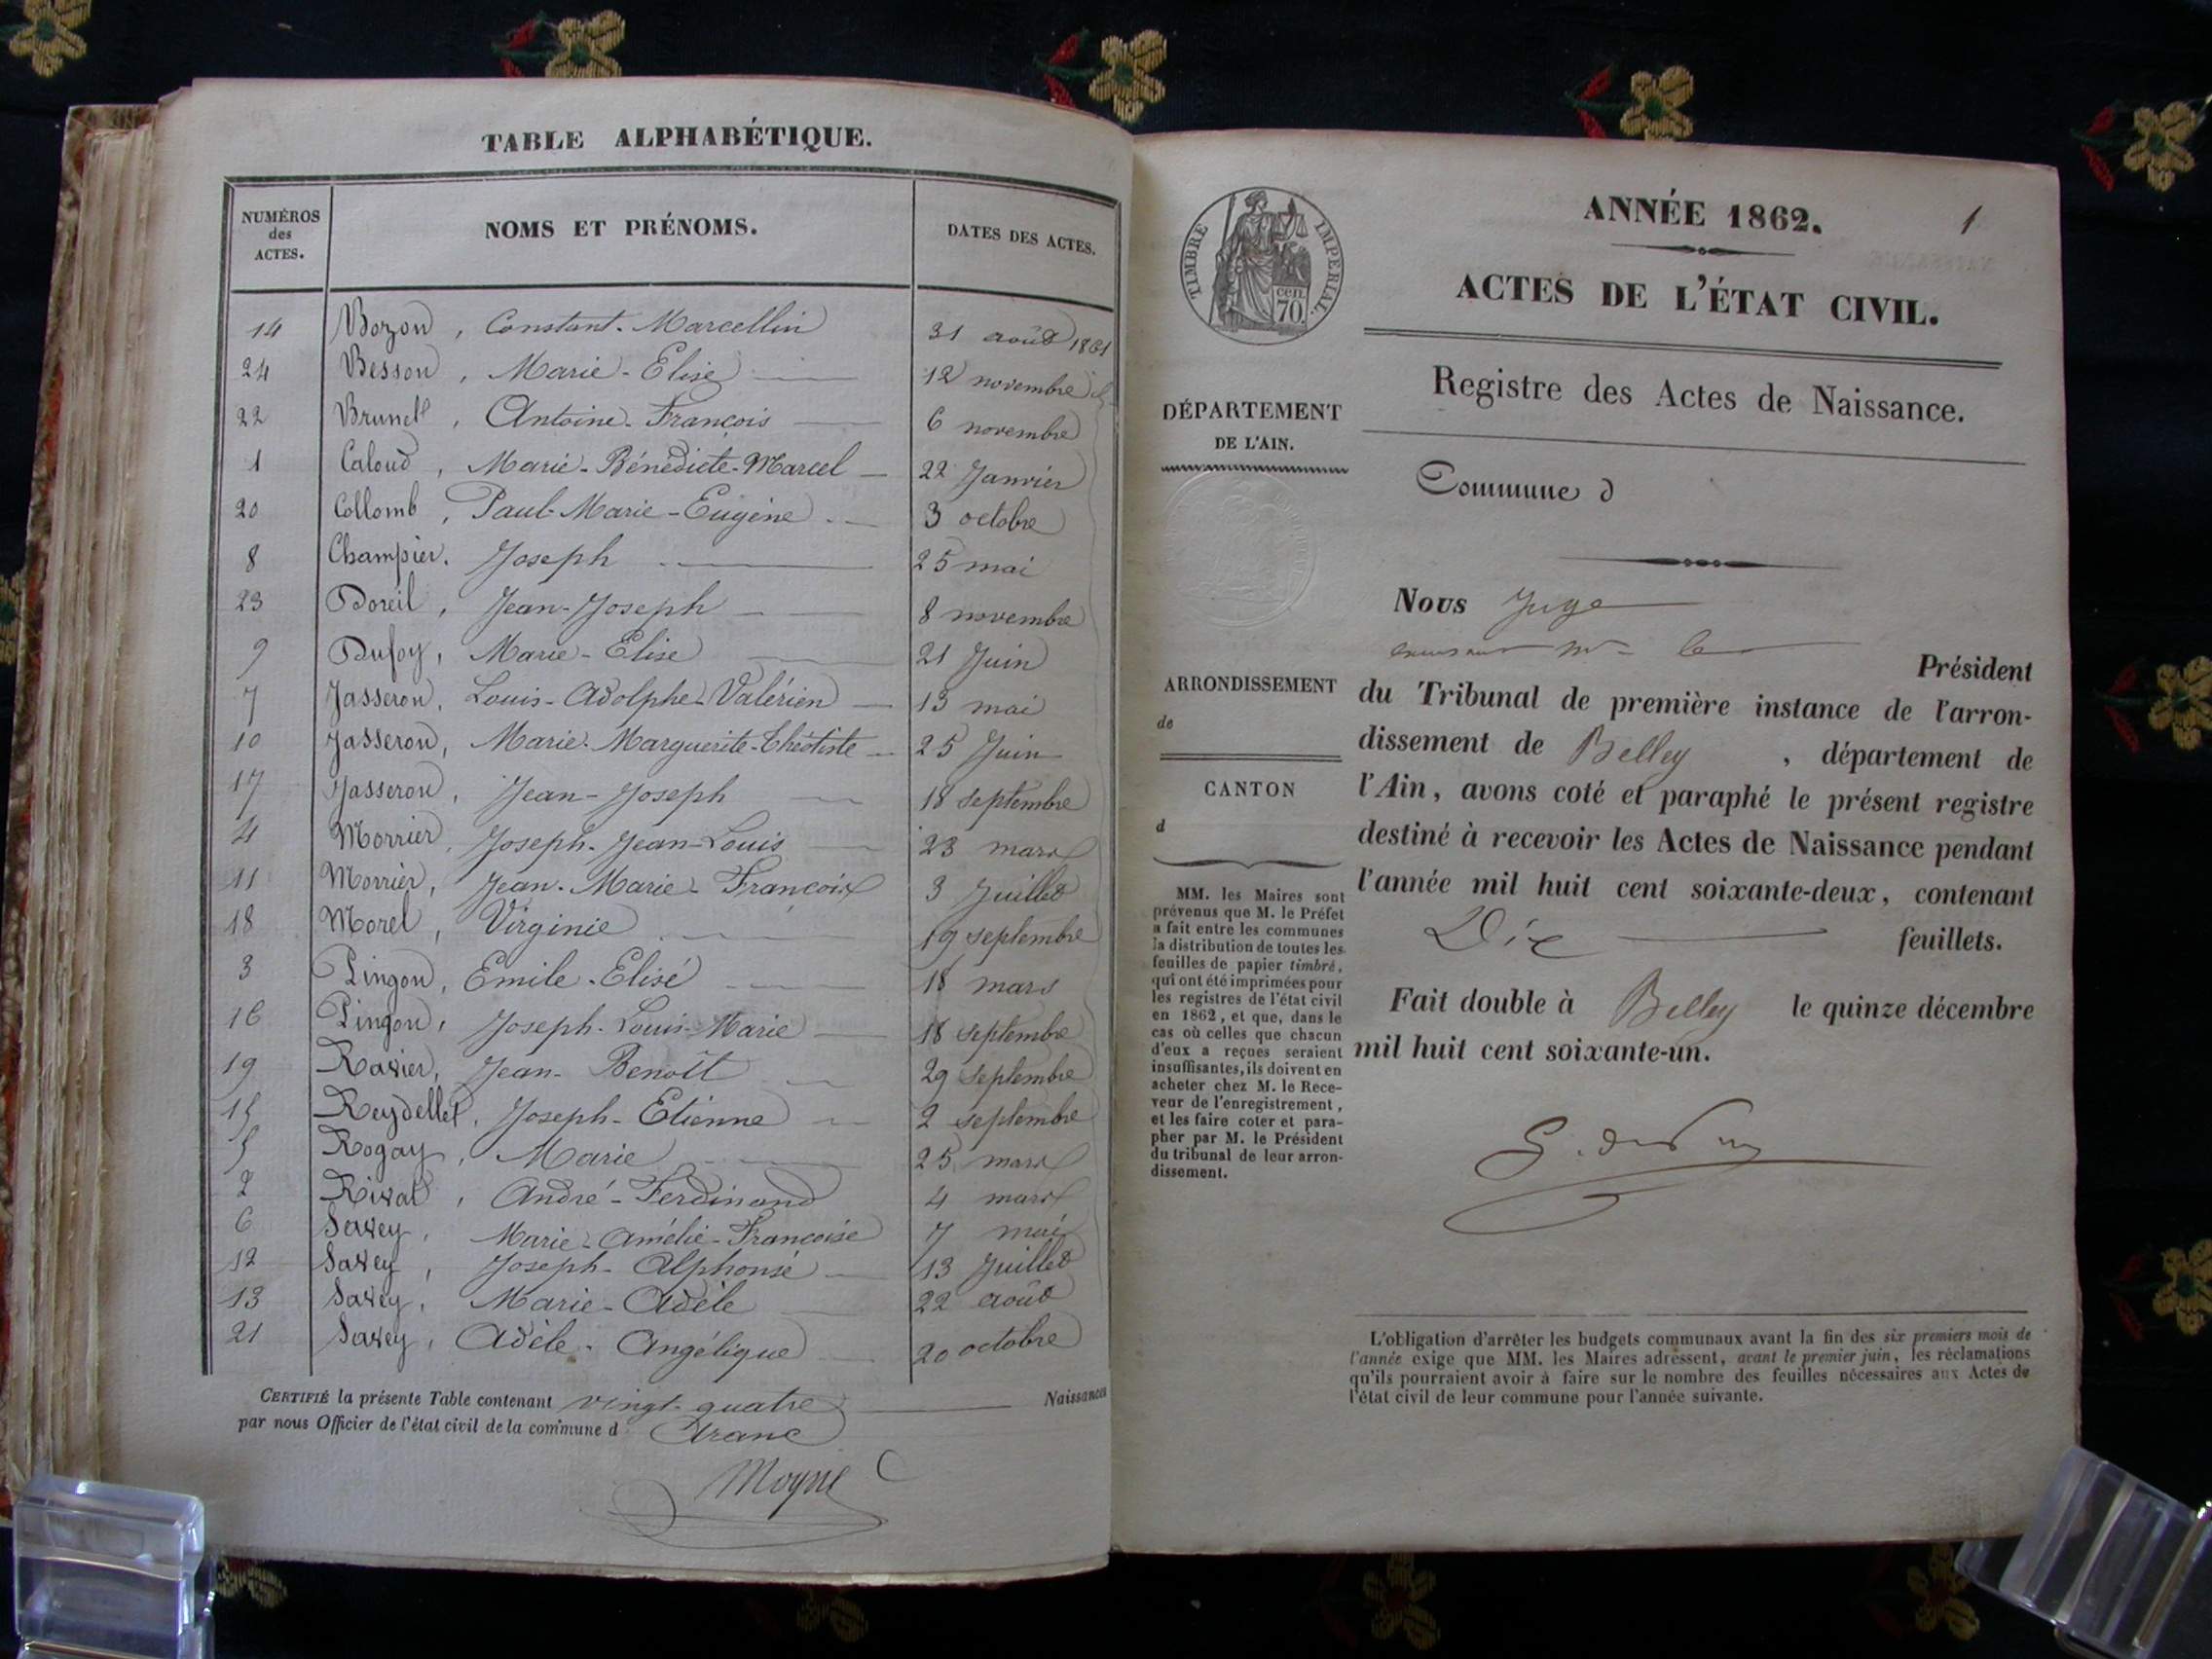 TABLE ALPHABÉTIQUE.
NUMÉROS des ACTES.
NOMS ET PRÉNOMS.
DATES DES ACTES.
14 Bozon, Constant-Marcellin 31 août 1861
24 Besson, Marie-Elise 12 novembre
22 Brunet, Antoine-François 6 novembre
1 Caloud, Marie-Bénédicte-Marcel 22 Janvier
20 Collomb, Paul-Marie-Eugène 3 octobre
8 Champier, Joseph 25 mai
23 Doreil, Jean-Joseph 8 novembre
9 Dufoy, Marie-Elise 21 Juin
7 Jasseron, Louis-Adolphe-Valérien 13 mai
10 Jasseron, Marie-Marguerite-Théotiste 25 Juin
17 Jasseron, Jean-Joseph 18 septembre
4 Morrier, Joseph-Jean-Louis 23 mars
11 Morrier, Jean-Marie-François 3 Juillet
18 Morel, Virginie 19 septembre
3 Pingon, Emile-Elisé 18 mars
16 Pingon, Joseph-Louis-Marie 18 septembre
19 Ravier, Jean-Benoît 29 septembre
15 Reydellet, Joseph-Etienne 2 septembre
5 Rogay, Marie 25 mars
2 Rival, André-Ferdinand 4 mars
6 Savey, Marie-Amélie-Françoise 7 mai
12 Savey, Joseph-Alphonse 13 Juillet
13 Savey, Marie-Adèle 22 août
21 Savey, Adèle-Angélique 20 octobre
CERTIFIÉ la présente Table contenant vingt-quatre Naissances
par nous Officier de l'état civil de la commune d
Moyne
TIMBRE IMPERIAL.
CEN. 70.
DÉPARTEMENT
DE L'AIN.
ARRONDISSEMENT
de
CANTON
d
MM. les Maires sont
prévenus que M. le Préfet
a fait entre les communes
la distribution de toutes les
feuilles de papier timbré,
qui ont été imprimées pour
les registres de l'état civil
en 1862, et que, dans le
cas où celles que chacun
d'eux a reçues seraient
insuffisantes, ils doivent en
acheter chez M. le Rece-
veur de l'enregistrement,
et les faire coter et para-
pher par M. le Président
du tribunal de leur arron-
dissement.
ANNÉE 1862.
1
ACTES DE L'ÉTAT CIVIL.
Registre des Actes de Naissance.
Commune d
Nous Juge
Président
du Tribunal de première instance de l'arron-
dissement de Belley, département de
l'Ain, avons coté et paraphé le présent registre
destiné à recevoir les Actes de Naissance pendant
l'année mil huit cent soixante-deux, contenant
Dix feuillets.
Fait double à Belley le quinze décembre
mil huit cent soixante-un.
L'obligation d'arrêter les budgets communaux avant la fin des six premiers mois de
l'année exige que MM. les Maires adressent, avant le premier juin, les réclamations
qu'ils pourraient avoir à faire sur le nombre des feuilles nécessaires aux Actes de
l'état civil de leur commune pour l'année suivante.